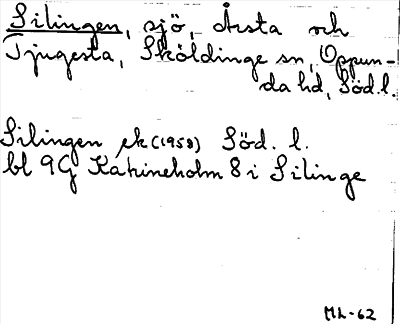 Silingen, sjö, Årsta och
Tjugesta, Sköldinge sn, Oppun-
da hd, Söd.l.
Silingen ek (1958) Söd. l.
bl 9G Katrineholm 8 i Silinge
ML-62